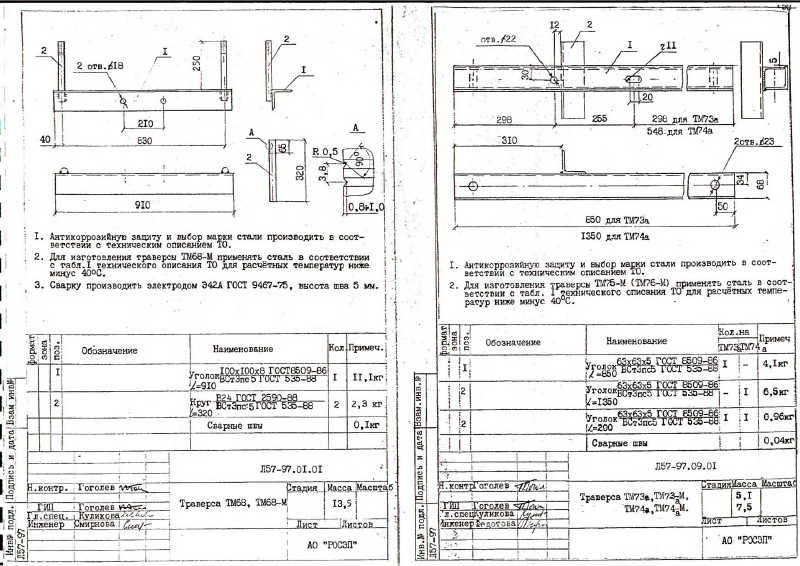 2
2 отв.ø18
I
250
2
I
210
40
830
910
А
65
2
320
А
R 0,5
90°
3,8
0,8÷I,0
I. Антикоррозийную защиту и выбор марки стали производить в соот-
ветствии с техническим описанием ТО.
2. Для изготовления траверсы ТМ68-М применять сталь в соответствии
с табл.I технического описания ТО для расчётных температур ниже
минус 40°С.
3. Сварку производить электродом Э42А ГОСТ 9467-75, высота шва 5 мм.
формат зона поз. Обозначение Наименование Кол. Примеч.
I Уголок I00х100х8 ГОСТ8509-86 ВСт3пс5 ГОСТ 535-88 ℓ=910 I II,Iкг
2 Круг В24 ГОСТ 2590-88 ВСт3пс5 ГОСТ 535-88 ℓ=320 2 2,3 кг
Сварные швы 0,Iкг
Л57-97.0I.0I
Н.контр. Гоголев
ГИП Гоголев
Гл.спец. Куликова
Инженер Смирнова
Траверса ТМ68, ТМ68-М
Стадия Масса Масштаб
I3,5
Лист Листов
АО "РОСЭП"
Инв.№ подл. Подпись и дата Взам инв№
Л57-97
отв.ø22
I2
2
I
II
30
20
5
298
255
298 для ТМ73а
548 для ТМ74а
310
2отв.ø23
34
68
50
850 для ТМ73а
I350 для ТМ74а
I. Антикоррозийную защиту и выбор марки стали производить в соот-
ветствии с техническим описанием ТО.
2. Для изготовления траверсы ТМ75-М (ТМ76-М) применять сталь в соот-
ветствии с табл. I технического описания ТО для расчётных темпе-
ратур ниже минус 40°С.
формат зона поз. Обозначение Наименование Кол.на ТМ73а ТМ74 Примеч
I Уголок 63х63х5 ГОСТ 8509-86 ВСт3пс5 ГОСТ 535-88 ℓ=850 I - 4,Iкг
2 Уголок 63х63х5 ГОСТ 8509-86 ВСт3пс5 ГОСТ 535-88 ℓ=I350 - I 6,5кг
2 Уголок 63х63х5 ГОСТ 8509-86 ВСт3пс5 ГОСТ 535-88 ℓ=200 I I 0,96кг
Сварные швы 0,04кг
Л57-97.09.0I
Н.контр Гоголев
ГИП Гоголев
Гл.спец Куликова
Инженер Федотова
Траверса ТМ73а,ТМ73аМ,
ТМ74а,ТМ74аМ.
Стадия Масса Масштаб
5,I
7,5
Лист Листов
АО "РОСЭП"
Инв.№ подл. Подпись и дата Взам.инв.№
Л57-97